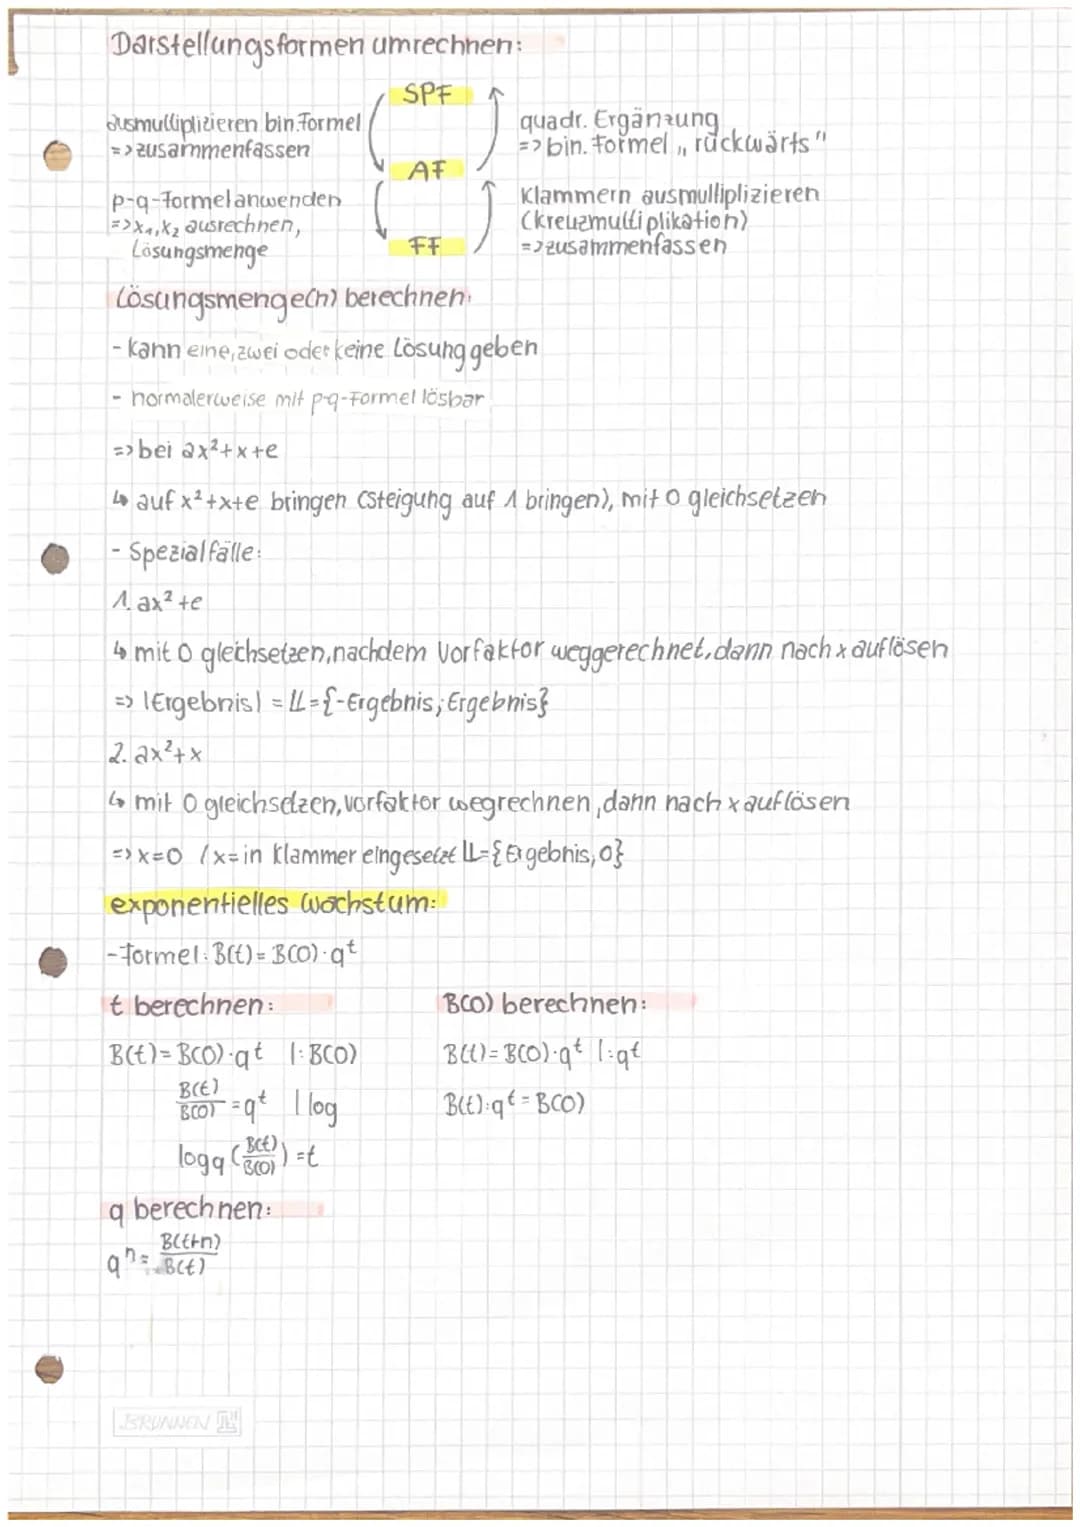 Darstellungsformen umrechnen:
SPF
ausmultiplizieren bin.Formel
=> zusammenfassen
quadr. Ergänzung
=> bin. Formel „rückwärts"
AF
p-q-Formel anwenden
=> x₁, x₂ ausrechnen,
Lösungsmenge
Klammern ausmultiplizieren
(kreuzmultiplikation)
=> zusammenfassen
FF
Lösungsmenge(n) berechnen:
- kann eine, zwei oder keine Lösung geben
- normalerweise mit p-q-Formel lösbar
=> bei ax²+x+e
↳ auf x²+x+e bringen (Steigung auf 1 bringen), mit 0 gleichsetzen
- Spezialfälle:
1. ax²+e
↳ mit 0 gleichsetzen, nachdem Vorfaktor weggerechnet, dann nach x auflösen
=> |Ergebnis| = 𝕃={-Ergebnis; Ergebnis}
2. ax²+x
↳ mit 0 gleichsetzen, vorfaktor wegrechnen, dann nach x auflösen
=> x=0 / x= in Klammer eingesetzt 𝕃={Ergebnis, 0}
exponentielles Wachstum:
- Formel: B(t) = B(0)·q^t
t berechnen:
B(t)= B(0)·q^t |:B(0)
B(t)/B(0) = q^t | log
log_q (B(t)/B(0)) = t
B(0) berechnen:
B(t)= B(0)·q^t |:q^t
B(t):q^t = B(0)
q berechnen:
q^n = B(t+n)/B(t)
BRUNNEN